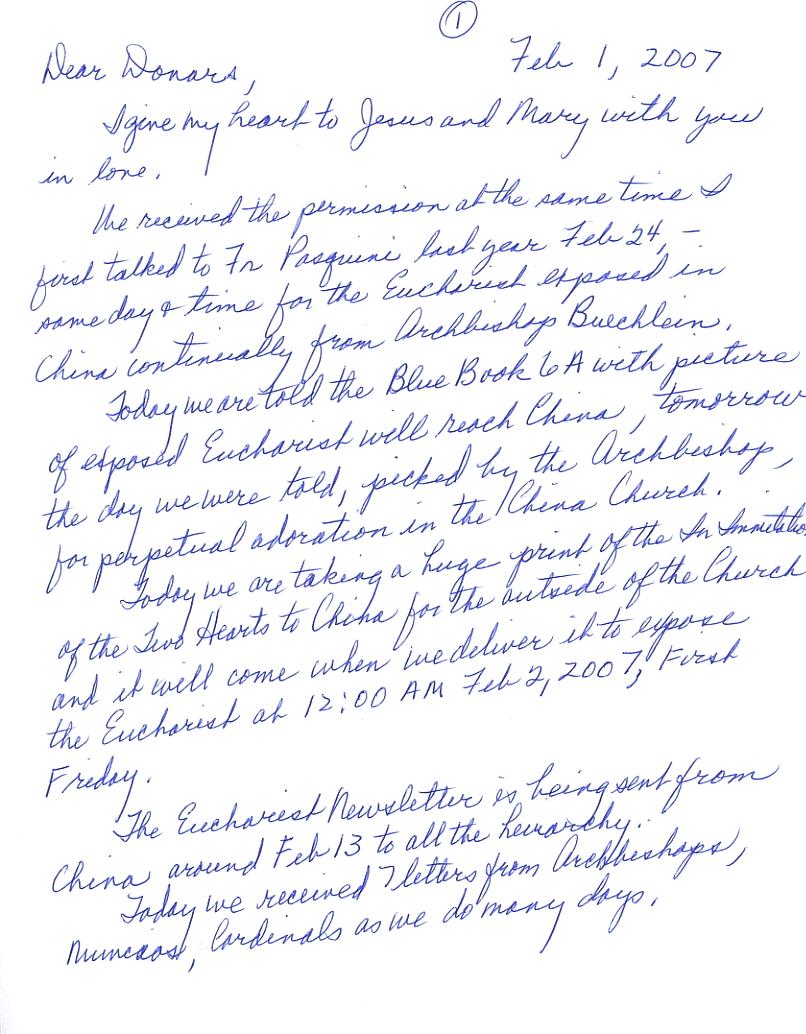 1
Feb 1, 2007
Dear Donars,
I give my heart to Jesus and Mary with you
in love.
We received the permission at the same time I
first talked to Fr Pasquini last year Feb 24, –
same day & time for the Eucharist exposed in
China continually from Archbishop Buechlein.
Today we are told the Blue Book 6 A with picture
of exposed Eucharist will reach China, tomorrow
the day we were told, picked by the Archbishop,
for perpetual adoration in the China Church.
Today we are taking a huge print of the In Immitatio
of the Two Hearts to China for the outside of the Church
and it will come when we deliver it to expose
the Eucharist at 12:00 AM Feb 2, 2007, First
Friday.
The Eucharist Newsletter is being sent from
China around Feb 13 to all the heirarchy.
Today we received 7 letters from Archbishops,
Cardinals as we do many days.